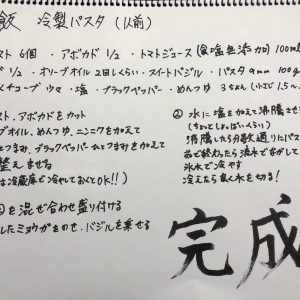 飯 冷製パスタ (1人前)
スト 6個 ・アボカド 1/2 ・トマトジュース (食塩無添加) 100ml
ド 1/2 ・オリーブオイル 2回しくらい ・スイートバジル ・パスタ 9mm 100g
チューブ 少々 ・塩 ・ブラックペッパー ・めんつゆ 3
スト、アボカドをカット
オイル、めんつゆ、ニンニクを加えて
つまみ、ブラックペッパーひとつまみを加えて
整えませる
は冷蔵庫で冷やしておくてOK!!)
② 水に塩を加えて沸騰させ
(ちょいとしょっぱいくらい)
沸騰したら分数通りにパス
茹で終わったら流水でながして
氷水で冷やす
冷えたら良く水を切る!
を混ぜ合わせ盛り付ける
したミョウガをのせ、バジルを乗せる
完成